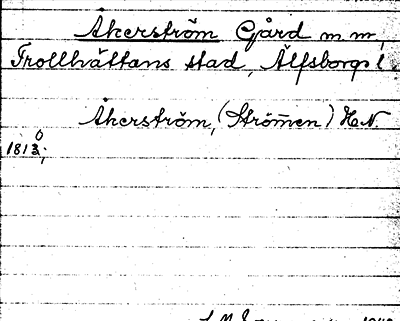 Åkerström Gård m m,
Trollhättans stad, Älfsborgs l.
Åkerström, (Strömmen) H.N
1813;